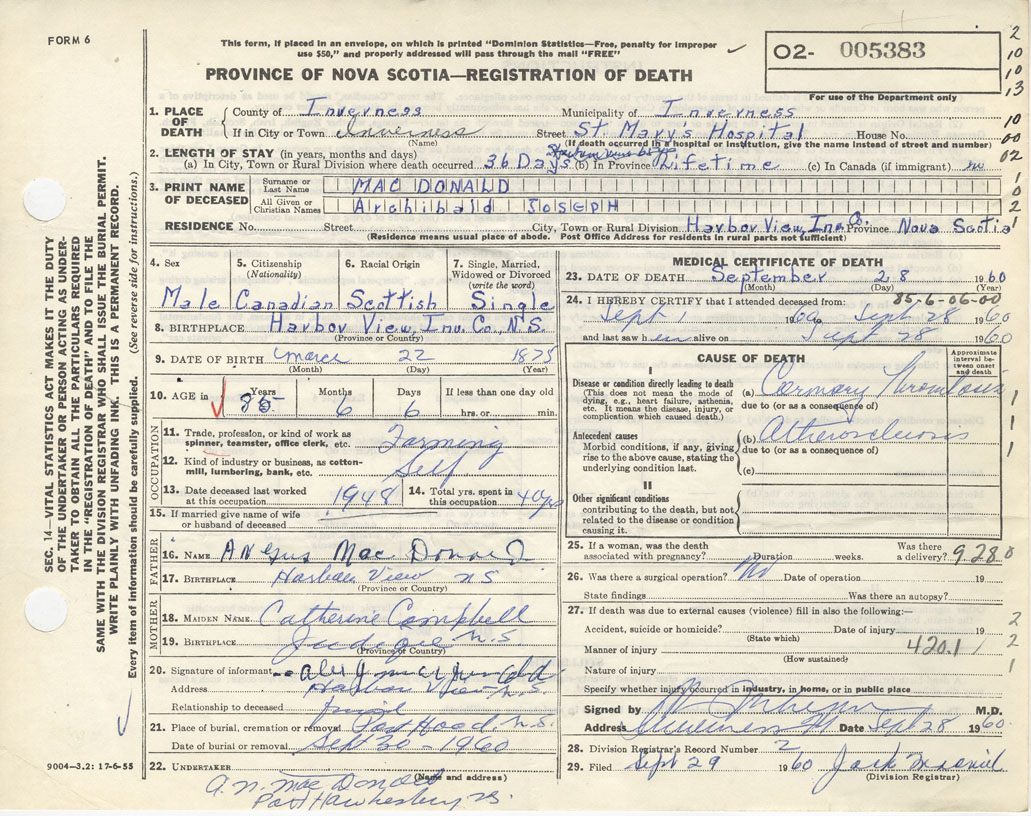 FORM 6
This form, if placed in an envelope, on which is printed "Dominion Statistics—Free, penalty for improper
use $50," and properly addressed will pass through the mail "FREE"
O2- 005383
PROVINCE OF NOVA SCOTIA—REGISTRATION OF DEATH
For use of the Department only
1. PLACE OF DEATH
County of Inverness Municipality of Inverness
If in City or Town Inverness Street St. Mary's Hospital House No.
(Name) (If death occurred in a hospital or institution, give the name instead of street and number)
2. LENGTH OF STAY (in years, months and days)
(a) In City, Town or Rural Division where death occurred 36 Days (b) In Province Lifetime (c) In Canada (if immigrant)
3. PRINT NAME OF DECEASED
Surname or Last Name MAC DONALD
All Given or Christian Names Archibald JOSEPH
RESIDENCE No. Street City, Town or Rural Division Harbor View, Inv. Co. Province Nova Scotia
(Residence means usual place of abode. Post Office Address for residents in rural parts not sufficient)
4. Sex 5. Citizenship (Nationality) 6. Racial Origin 7. Single, Married, Widowed or Divorced (write the word)
Male Canadian Scottish Single
8. BIRTHPLACE Harbor View, Inv. Co., N.S.
(Province or Country)
9. DATE OF BIRTH March 22 1875
(Month) (Day) (Year)
10. AGE in Years Months Days If less than one day
85 6 6 hrs. or min.
OCCUPATION
11. Trade, profession, or kind of work as spinner, teamster, office clerk, etc. Farming
12. Kind of industry or business, as cotton-mill, lumbering, bank, etc. Self
13. Date deceased last worked at this occupation 1948 14. Total yrs. spent in this occupation 40 yrs
15. If married give name of wife or husband of deceased
FATHER
16. NAME Angus Mac Donald
17. BIRTHPLACE Harbour View N S
(Province or Country)
MOTHER
18. MAIDEN NAME Catherine Campbell
19. BIRTHPLACE Judique N.S
(Province or Country)
20. Signature of informant
Address Harbour View N.S.
Relationship to deceased
21. Place of burial, cremation or removal Port Hood N.S.
Date of burial or removal Sept 30 - 1960
22. UNDERTAKER A. N. Mac Donald
(Name and address)
Port Hawkesbury NS.
MEDICAL CERTIFICATE OF DEATH
23. DATE OF DEATH September 28 1960
(Month) (Day) (Year)
85-6-06-00
24. I HEREBY CERTIFY that I attended deceased from:
Sept 1 1960 Sept 28 1960
and last saw h im alive on Sept 28 1960
CAUSE OF DEATH
Approximate interval between onset and death
I
Disease or condition directly leading to death
(This does not mean the mode of dying, e.g., heart failure, asthenia, etc. It means the disease, injury, or complication which caused death.)
(a) Coronary Thrombosis
due to (or as a consequence of)
Antecedent causes
Morbid conditions, if any, giving rise to the above cause, stating the underlying condition last.
(b) Atherosclerosis
due to (or as a consequence of)
(c)
II
Other significant conditions
contributing to the death, but not related to the disease or condition causing it.
25. If a woman, was the death associated with pregnancy? Duration weeks. Was there a delivery?
9280
26. Was there a surgical operation? No Date of operation 19
State findings Was there an autopsy?
27. If death was due to external causes (violence) fill in also the following:—
Accident, suicide or homicide? Date of injury 19
(State which)
Manner of injury 420.1
(How sustained)
Nature of injury
Specify whether injury occurred in industry, in home, or in public place
Signed by M.D.
Address Inverness Date Sept 28 1960
28. Division Registrar's Record Number 2
29. Filed Sept 29 1960 Jack
(Division Registrar)
SEC. 14—VITAL STATISTICS ACT MAKES IT THE DUTY
OF THE UNDERTAKER OR PERSON ACTING AS UNDER-
TAKER TO OBTAIN ALL THE PARTICULARS REQUIRED
IN THE "REGISTRATION OF DEATH" AND TO FILE THE
SAME WITH THE DIVISION REGISTRAR WHO SHALL ISSUE THE BURIAL PERMIT.
WRITE PLAINLY WITH UNFADING INK. THIS IS A PERMANENT RECORD.
Every item of information should be carefully supplied. (See reverse side for instructions.)
9004—3.2: 17-6-55
2
10
10
13
10
00
02
1
0
2
1
1
1
1
2
2
1